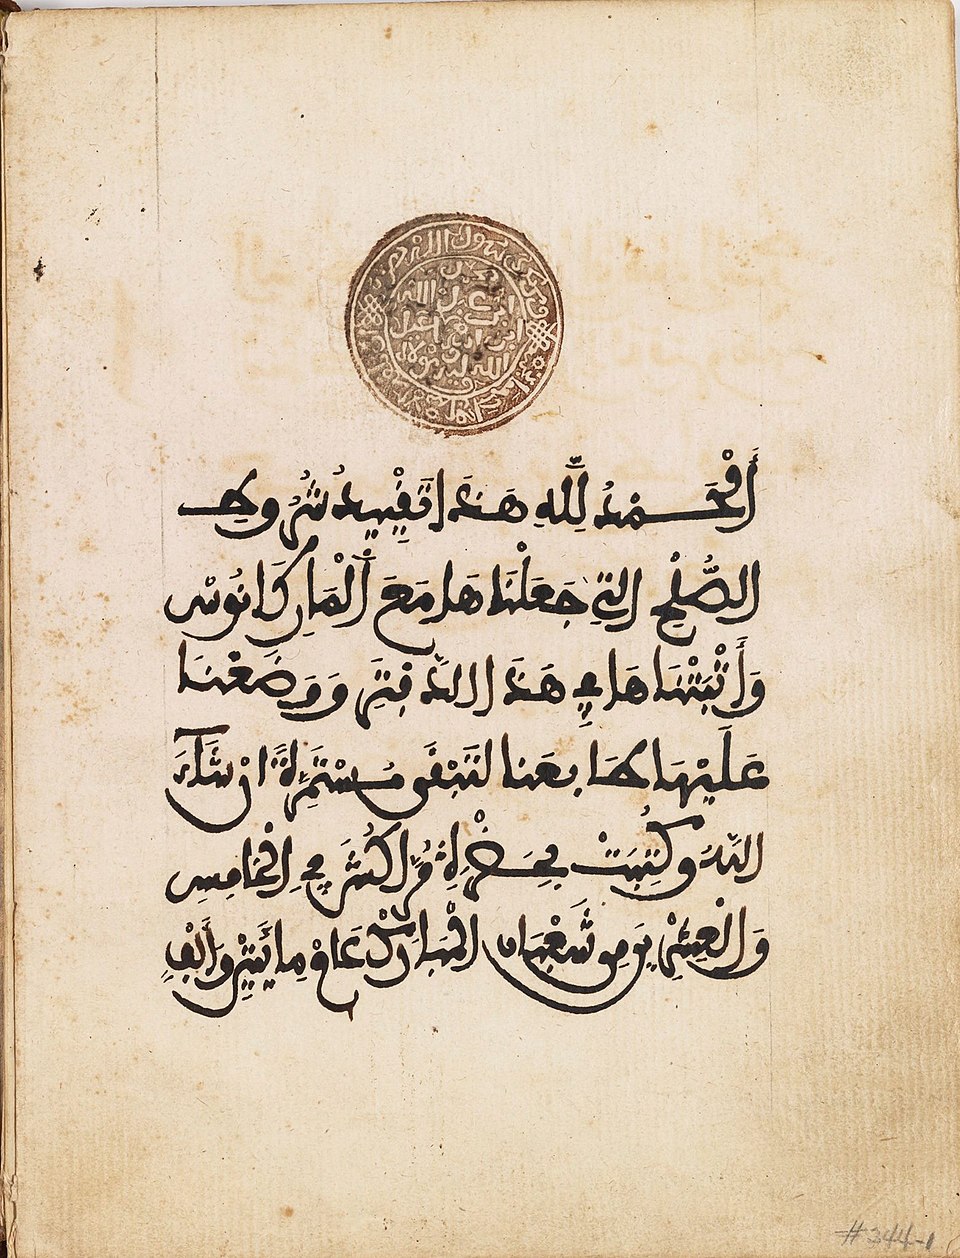 أَلْحَمْدُ لِلَّهِ هَذَا تَفْيِيدُ شُرُوطِ
الصُّلْحِ التِي جَعَلْنَا هَا مَعَ أَلْمَارِكَانُوسْ
وَأَثْبَتْنَا هَا فِي هَذَا الدَّفْتَرِ وَوَضَعْنَا
عَلَيْهَا طَابِعَنا لِتَبْقَى مُسْتَمِرَّةً انْ شَاءَ
اللَّهُ وَكُتِبَتْ بِحَضْرَةِ مُرَّاكُشَ فِي الْخَامِسِ
وَالْعِشْرِين مِن شَعْبَان الْمُبَارَكْ عَامْ مِائَتَيْنِ وَأَلْفٍ
#344-1